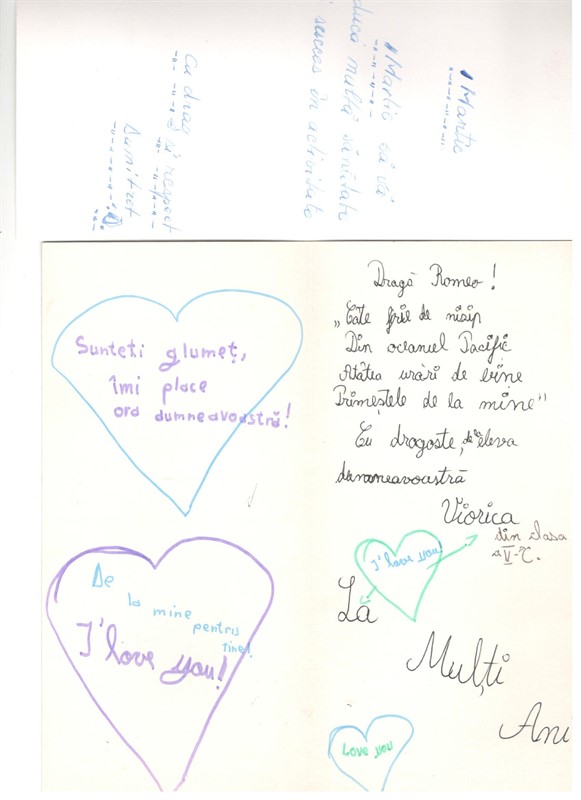 1 Martie
1 Martie să vă
aducă multă sănătate
succes în activitate
Cu drag
și respect
Dumitru
Sunteți glumeț,
îmi place
ora dumneavoastră!
De
la mine
pentru
tine!
I'love you!
Dragă Romeo!
„Câte fire de nisip
Din oceanul Pacific
Atâtea urări de bine
Primeștele de la mine”
Cu dragoste, de la eleva
dumneavoastră
Viorica
din clasa
a V-C.
I'love you!
La
Mulți
Ani
Love you